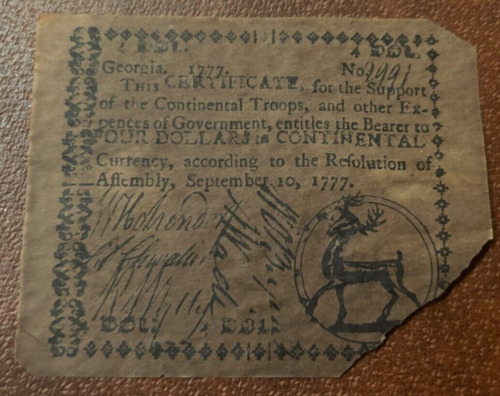 4 DOL. 4 DOL.
Georgia. 1777. No 2991
THIS CERTIFICATE, for the Support
of the Continental Troops, and other Ex-
pences of Government, entitles the Bearer to
FOUR DOLLARS in CONTINENTAL
Currency, according to the Resolution of
Assembly, September 10, 1777.
DOL. 4 DOL.